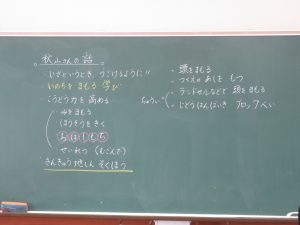 秋山さんの話
。いざというとき、うごけるように!!
いのちをまもる 学び
こうどう力を高める
・ゆをまもる
・ほうそうをきく
おはしもち
・せいれつ (むごんで)
きんきゅう地しん そくほう
・頭をまもる
・つくえの あしを もつ
・ランドセルなどで 頭をまもる
ちゅうい
・じどうはんばいき ブロックべい